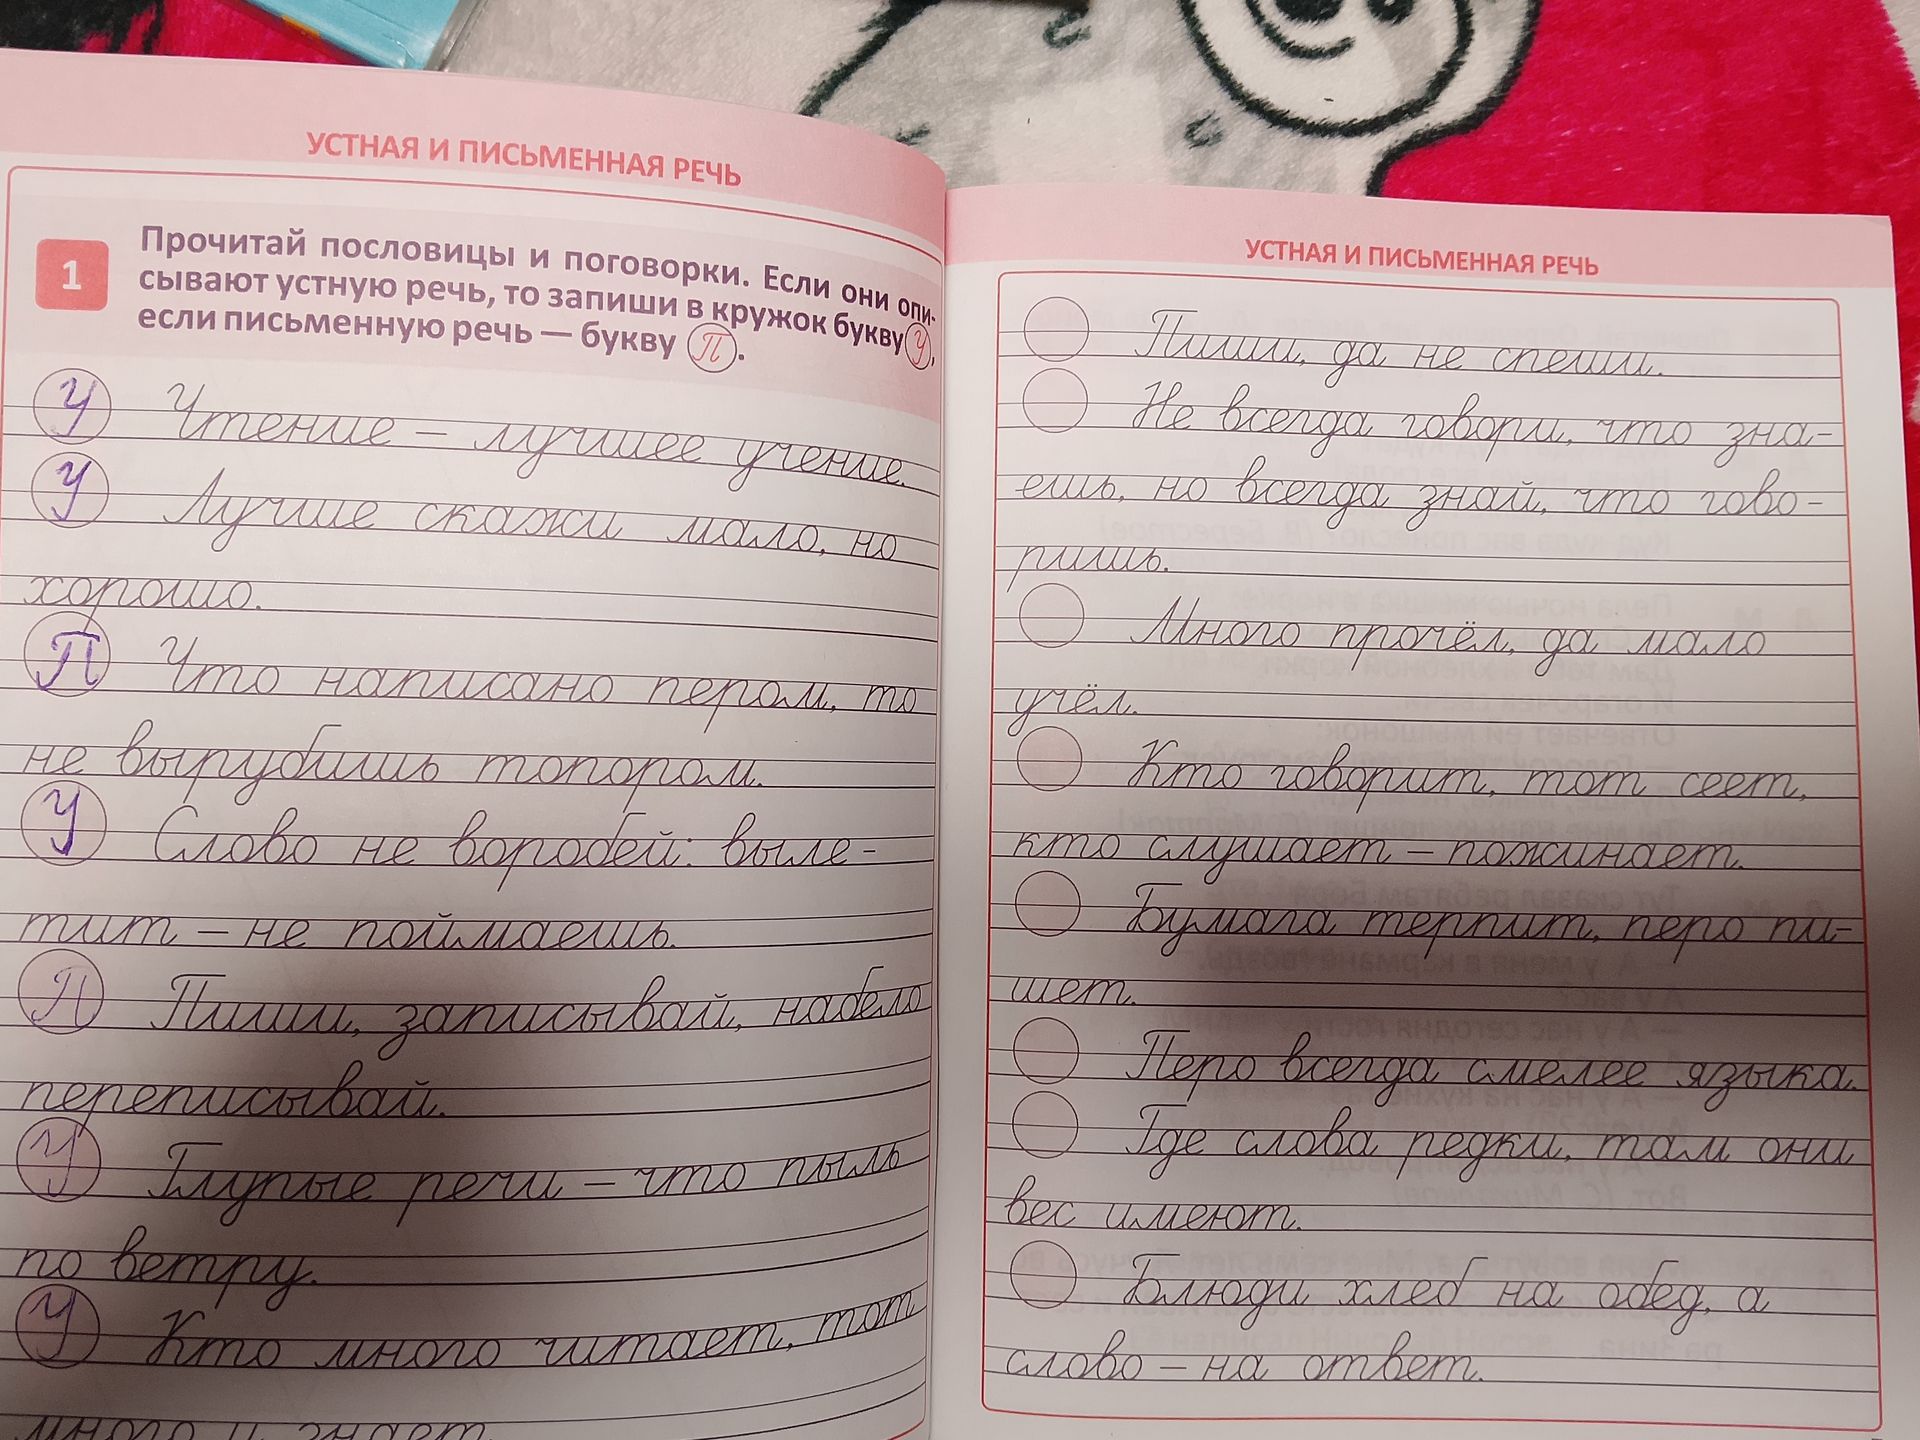 УСТНАЯ И ПИСЬМЕННАЯ РЕЧЬ
1
Прочитай пословицы и поговорки. Если они опи-
сывают устную речь, то запиши в кружок букву У,
если письменную речь — букву П.
У Чтение – лучшее учение.
У Лучше скажи мало, но
хорошо.
П Что написано пером, то
не вырубишь топором.
У Слово не воробей: выле-
тит – не поймаешь.
П Пиши, записывай, набело
переписывай.
У Глупые речи – что пыль
по ветру.
У Кто много читает, тот
много и знает.
УСТНАЯ И ПИСЬМЕННАЯ РЕЧЬ
Пиши, да не спеши.
Не всегда говори, что зна-
ешь, но всегда знай, что гово-
ришь.
Много прочёл, да мало
учёл.
Кто говорит, тот сеет,
кто слушает – пожинает.
Бумага терпит, перо пи-
шет.
Перо всегда смелее языка.
Где слова редки, там они
вес имеют.
Блюди хлеб на обед, а
слово – на ответ.